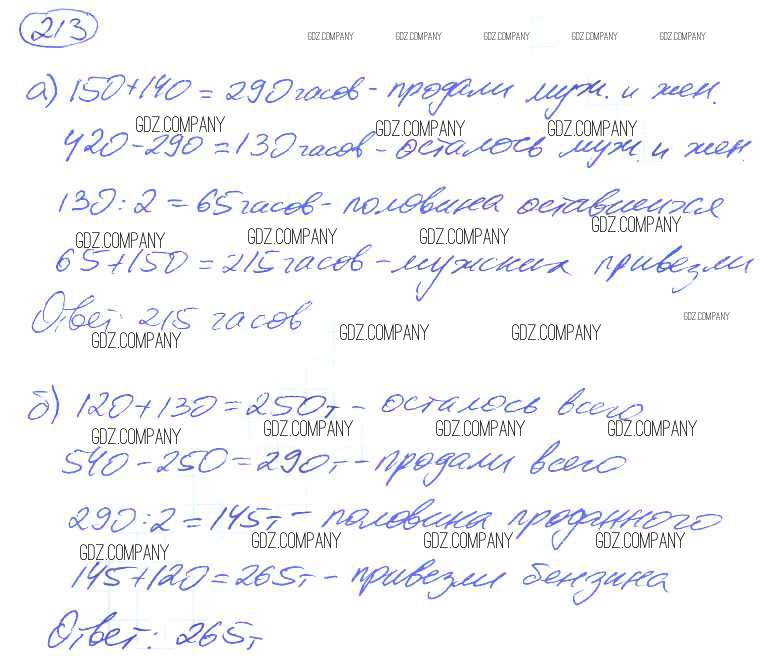 213
GDZ.COMPANY GDZ.COMPANY GDZ.COMPANY GDZ.COMPANY GDZ.COMPANY
а) 150+140 = 290 часов - продали муж. и жен.
GDZ.COMPANY GDZ.COMPANY GDZ.COMPANY
420-290 = 130 часов - осталось муж. и жен.
130:2 = 65 часов - половина оставшихся
GDZ.COMPANY GDZ.COMPANY GDZ.COMPANY GDZ.COMPANY
65+150 = 215 часов - мужских привезли
Ответ: 215 часов
GDZ.COMPANY GDZ.COMPANY GDZ.COMPANY GDZ.COMPANY
б) 120+130 = 250т - осталось всего
GDZ.COMPANY GDZ.COMPANY GDZ.COMPANY GDZ.COMPANY
540-250 = 290т - продали всего
290:2 = 145т - половина проданного
GDZ.COMPANY GDZ.COMPANY GDZ.COMPANY GDZ.COMPANY
145+120 = 265т - привезли бензина
Ответ: 265т